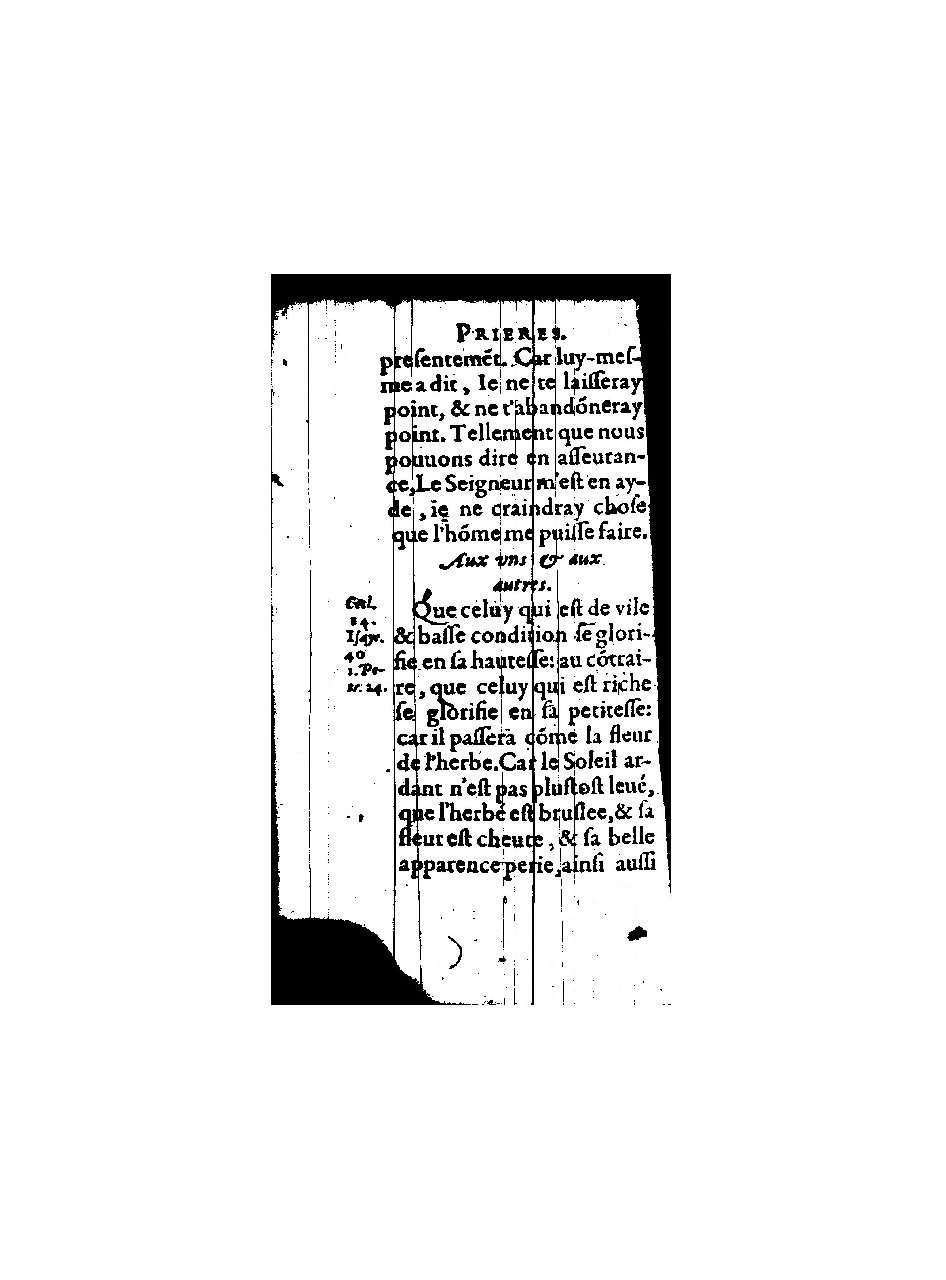 PRIERES.
presentemēt. Car luy-mes-
me a dit, Ie ne te laisseray
point, & ne t'abandōneray
point. Tellement que nous
pouuons dire en asseuran-
ce, Le Seigneur m'est en ay-
de, ie ne craindray chose
que l'hōme me puisse faire.
Aux vns & aux
autres.
Que celuy qui est de vile
14.
Isaye.
& basse condition se glori-
40
fie en sa hautesse: au cōtrai-
1. Pe-
24.
re, que celuy qui est riche
se glorifie en sa petitesse:
car il passera cōme la fleur
de l'herbe. Car le Soleil ar-
dant n'est pas plustost leué,
que l'herbe est bruslee, & sa
fleur est cheute, & sa belle
apparence perie, ainsi aussi